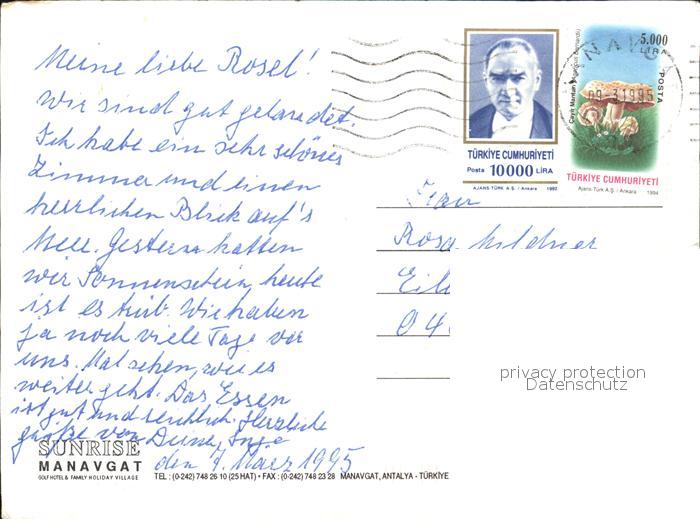 Meine liebe Rosel!
Wir sind gut gelandet.
Ich habe ein sehr schönes
Zimmer und einen
herrlichen Blick auf's
Meer. Gestern hatten
wir Sonnenschein, heute
ist es trüb. Wir haben
ja noch viele Tage vor
uns. Mal sehen, wie es
weiter geht. Das Essen
ist gut und reichlich. Herzliche
Grüße von Deiner Inge
den 7. März 1995
SUNRISE
MANAVGAT
GOLF HOTEL & FAMILY HOLIDAY VILLAGE
TEL : (0-242) 748 26 10 (25 HAT) • FAX : (0-242) 748 23 28 MANAVGAT, ANTALYA - TÜRKİYE
TÜRKİYE CUMHURİYETİ
Posta 10000 LİRA
AJANS TÜRK A.Ş. / Ankara 1992
5.000
LİRA
POSTA
TÜRKİYE CUMHURİYETİ
Ajans-Türk A.Ş. / Ankara 1994
09-31995
Frau
Rosa
Eil
04
privacy protection
Datenschutz